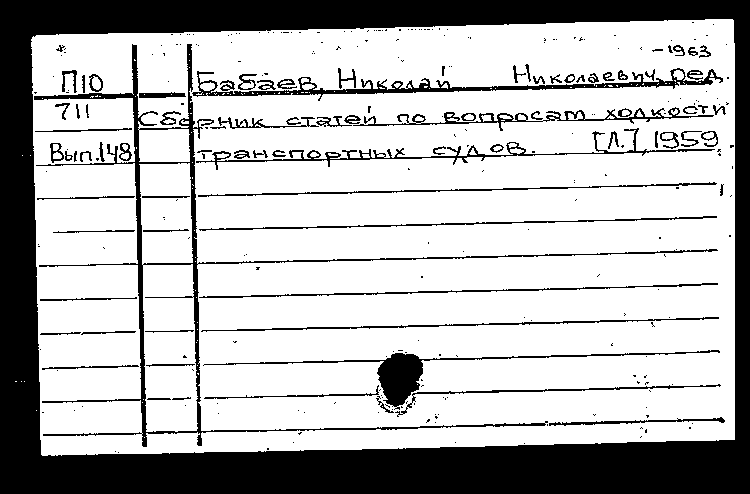 -1963
П10 Бабаев, Николай Николаевич, ред.
711 Сборник статей по вопросам ходкости
Вып.148 транспортных судов. [Л.], 1959.